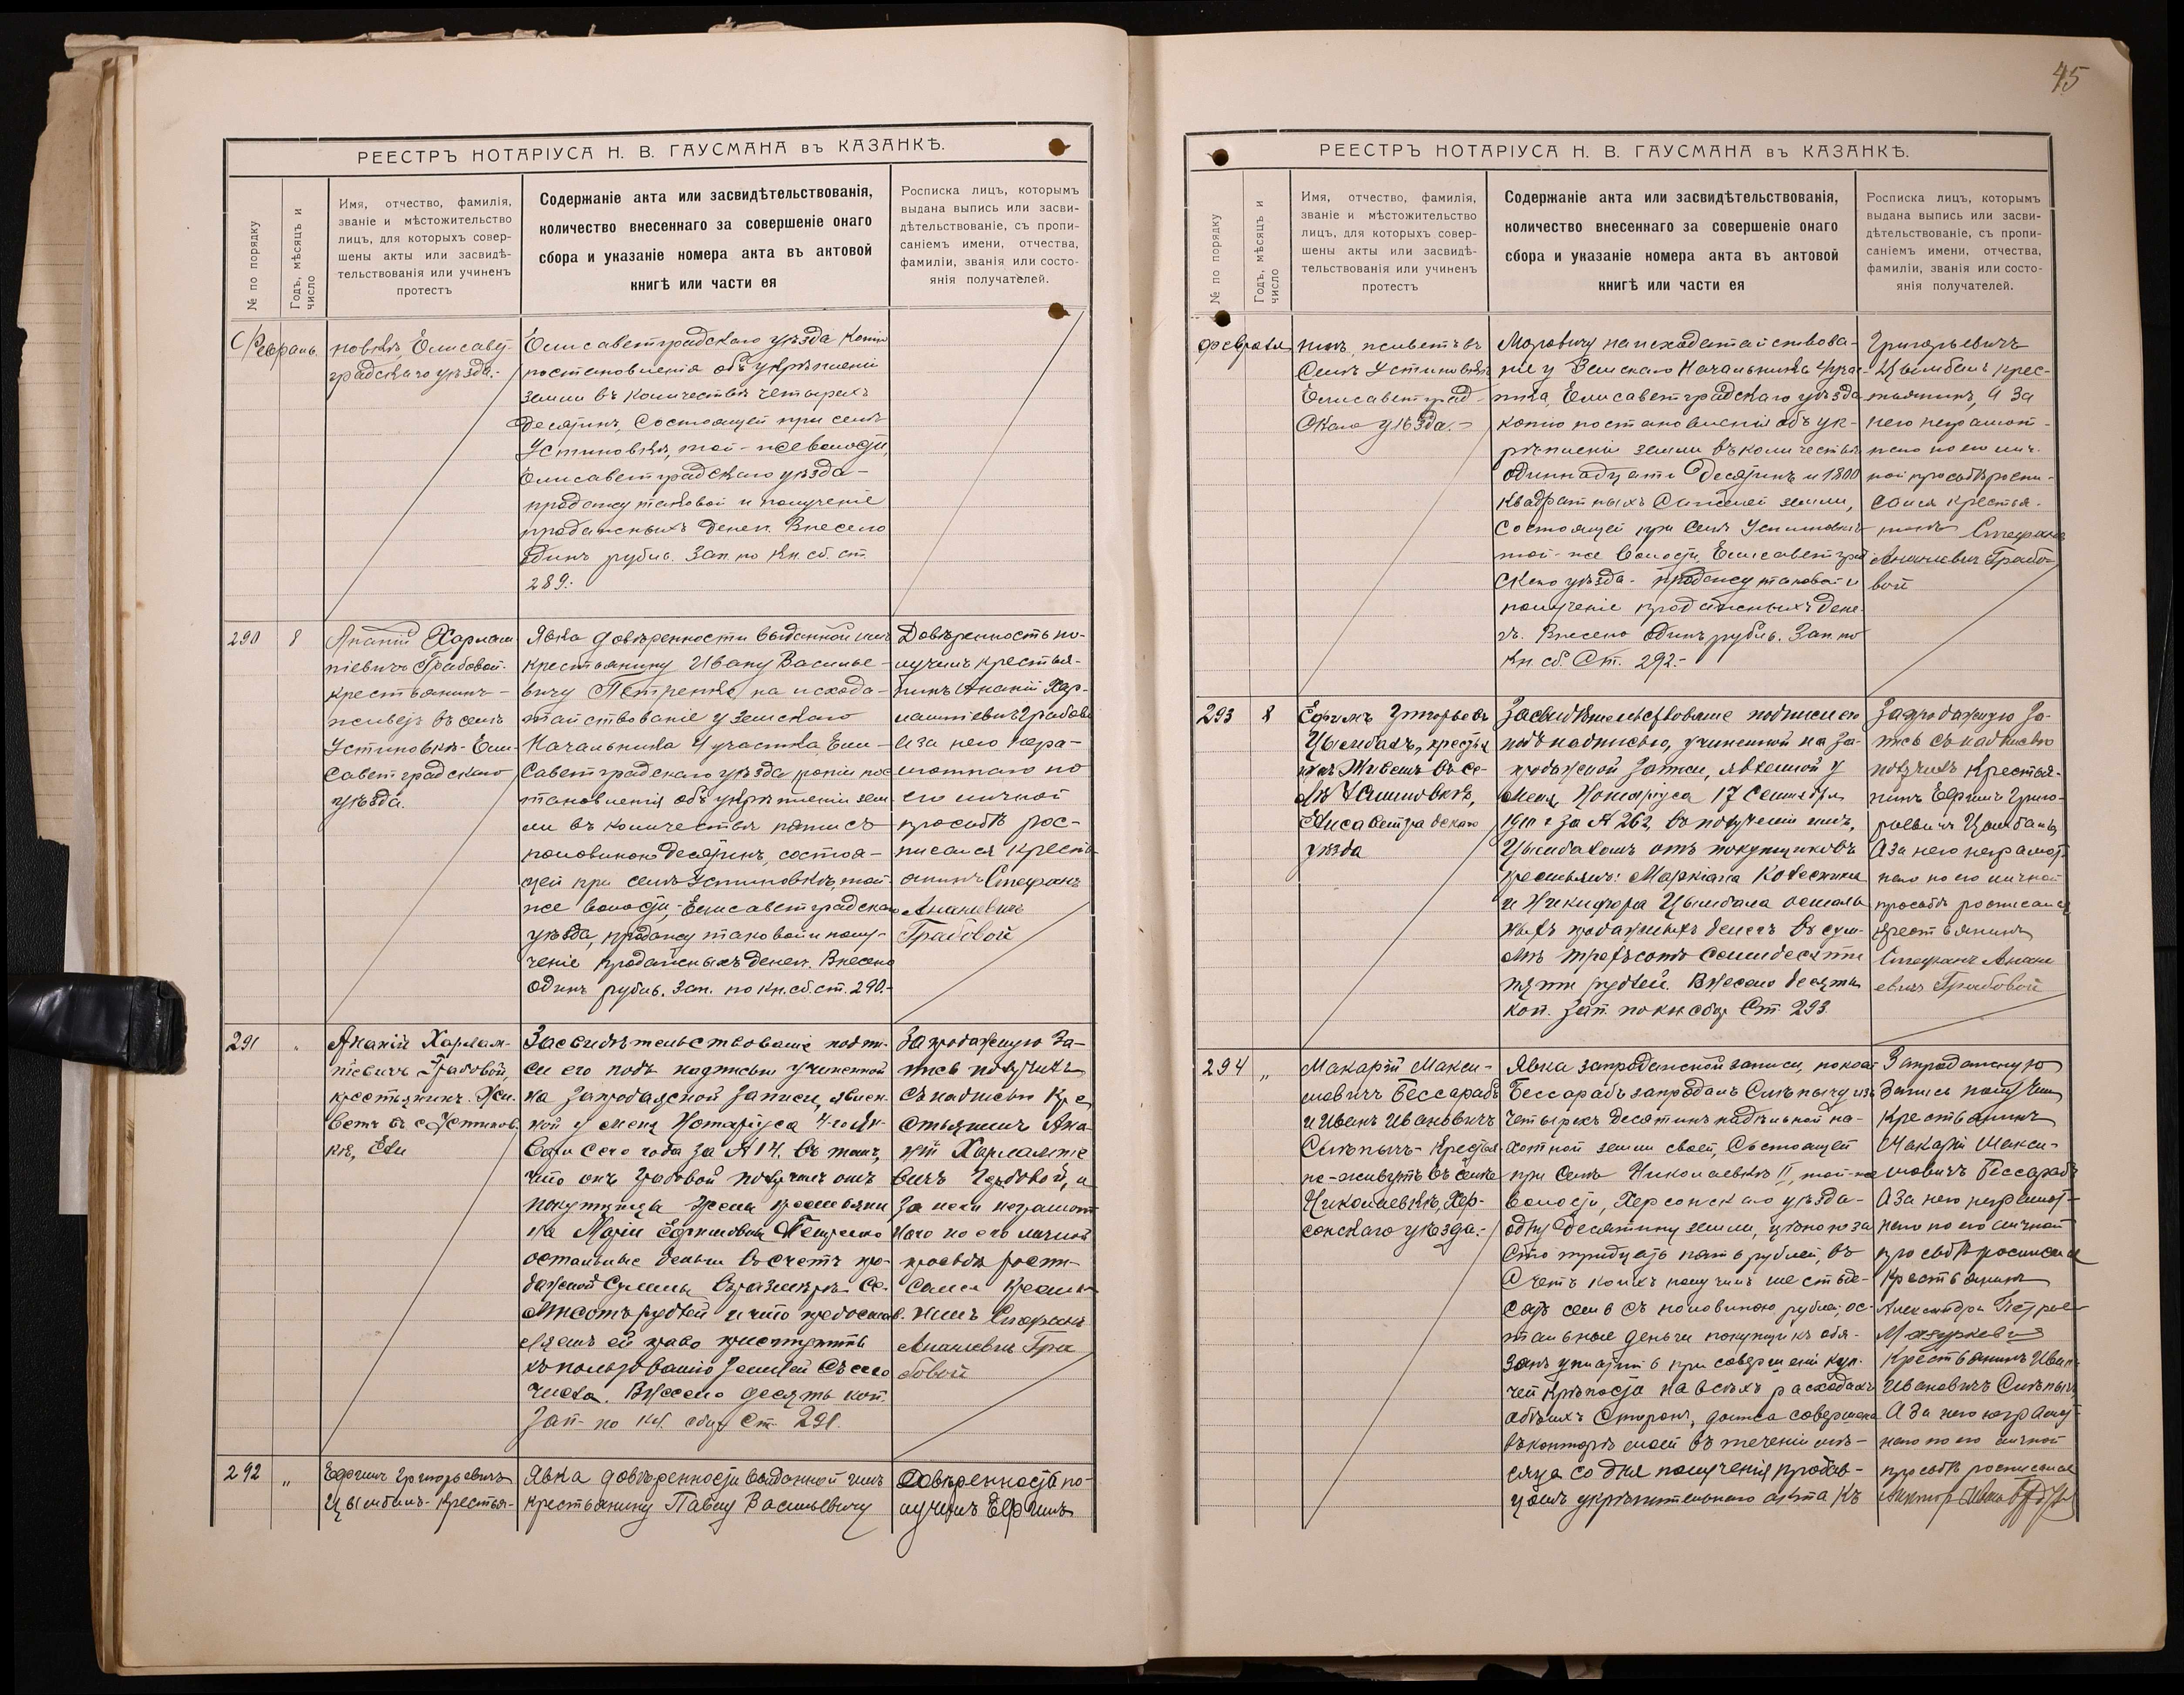 45
РЕЕСТРЪ НОТАРІУСА Н. В. ГАУСМАНА въ КАЗАНКѢ.
№ по порядку
Годъ, мѣсяцъ и
число
Имя, отчество, фамилія,
званіе и мѣстожительство
лицъ, для которыхъ совер-
шены акты или засвидѣ-
тельствованія или учиненъ
протестъ
Содержаніе акта или засвидѣтельствованія,
количество внесеннаго за совершеніе онаго
сбора и указаніе номера акта въ актовой
книгѣ или части ея
Росписка лицъ, которымъ
выдана выпись или засви-
дѣтельствованіе, съ пропи-
саніемъ имени, отчества,
фамиліи, званія или состо-
янія получателей.
Февраль
новкѣ, Елисавет-
градскаго уѣзда.-
Елисаветградскаго уѣзда копіи
постановленія объ укрѣпленіи
земли въ количествѣ четырехъ
десятинъ, состоящей при селѣ
Устиновкѣ, той-же волости,
Елисаветградскаго уѣзда-
продажу таковой и полученіе
продажныхъ денег. Внесено
одинъ рубль. Зап. по кн. сб. ст.
289.-
290
8
Ананій Харлам-
піевичъ Грабовой-
крестьянинъ-
живет въ селѣ
Устиновкѣ-Ели-
саветградскаго
уѣзда.
Явка довѣренности выданной имъ
крестьянину Ивану Василье-
вичу Петренкѣ на исхода-
тайствованіе у Земскаго
Начальника 4 участка, Ели-
саветградскаго уѣзда копіи пос-
тановленія объ укрѣпленіи зем-
ли въ количествѣ пяти съ
половиною десятинъ, состоя-
щей при селѣ Устиновкѣ, той-
же волости, Елисаветградскаго
уѣзда, продажу таковой и полу-
ченіе продажныхъ денег. Внесено
одинъ рубль. Зап. по кн. сб. ст. 290.-
Довѣренность по-
лучилъ крестья-
нинъ Ананій Хар-
лампіевич Грабовой
А за него негра-
мотнаго по
его личной
просьбѣ рос-
писался кресть-
янинъ Стефанъ
Ананьевичъ
Грабовой
291
"
Ананій Харлам-
піевичъ Грабовой,
крестьянинъ. Жи-
ветъ въ с. Устинов-
кѣ, Ели
Засвидѣтельствованіе подпи-
си его подъ надписью учиненной
на запродажной записи, явлен-
ной у меня Нотаріуса 4-го Ян-
варя сего года за № 14, въ томъ,
что онъ Грабовой получилъ отъ
покупщицы жены крестьяни-
на Маріи Ефимовны Петренко
остальные деньги въ счетъ про-
дажной суммы въ размѣрѣ се-
мисотъ рублей и что предостав-
ляетъ ей право приступить
къ пользованію землей съ сего
числа. Внесено десять коп.
Зап. по кн. сбор. Ст. 291.
Запродажную За-
пись получилъ
съ надписью Кре-
стьянинъ Ана-
ній Харлампіе-
вичъ Грабовой, а
за него неграмот-
наго по его личной
просьбѣ роспи-
сался крестья-
нинъ Стефанъ
Ананьевич Гра-
бовой
292
"
Ефимъ Григорьевичъ
Цымбалъ-крестья-
Явка довѣренности выданной имъ
крестьянину Павлу Васильевичу
Довѣренность по-
лучилъ Ефимъ
РЕЕСТРЪ НОТАРІУСА Н. В. ГАУСМАНА въ КАЗАНКѢ.
№ по порядку
Годъ, мѣсяцъ и
число
Имя, отчество, фамилія,
званіе и мѣстожительство
лицъ, для которыхъ совер-
шены акты или засвидѣ-
тельствованія или учиненъ
протестъ
Содержаніе акта или засвидѣтельствованія,
количество внесеннаго за совершеніе онаго
сбора и указаніе номера акта въ актовой
книгѣ или части ея
Росписка лицъ, которымъ
выдана выпись или засви-
дѣтельствованіе, съ пропи-
саніемъ имени, отчества,
фамиліи, званія или состо-
янія получателей.
Февраля
нинъ, живетъ въ
селѣ Устиновкѣ
Елисаветград-
скаго уѣзда.-
на исходатайствова-
ніе у Земскаго Начальника 4 учас-
тка, Елисаветградскаго уѣзда
копію постановленія объ ук-
рѣпленіи земли въ количествѣ
одиннадцати десятинъ и 1800
квадратныхъ саженей земли,
состоящей при селѣ Устиновкѣ
той-же волости, Елисаветград-
скаго уѣзда- продажу таковой и
полученіе продажныхъ дене-
гъ. Внесено одинъ рубль. Зап. по
кн. сб. Ст. 292.-
Григорьевичъ
Цымбалъ крес-
тьянинъ, А за
него неграмот-
наго по его лич-
ной просьбѣ роспи-
сался крестья-
нинъ Стефанъ
Ананьевич Грабо-
вой
293
8
Ефимъ Григорьевъ
Цымбалъ, крестья-
нинъ. Живетъ въ се-
лѣ Устиновкѣ,
Елисаветградскаго
уѣзда
Засвидѣтельствованіе подписи его
подъ надписью, учиненной на за-
продажной записи, явленной у
меня, Нотаріуса 17 Сентября
1910 г. за № 262, въ полученіи имъ,
Цымбаломъ отъ покупщиковъ
крестьянъ: Маркіана Колесника
и Никифора Цымбала осталь-
ныхъ продажныхъ денегъ въ сум-
мѣ трехсотъ семидесяти
пяти рублей. Внесено десять
коп. Зап. по кн сбор Ст. 293.
Запродажную За-
пись съ надписью
получилъ Крестья-
нинъ Ефимъ Григо-
рьевичъ Цымбалъ,
А за него неграмот-
наго по его личной
просьбѣ росписался
крестьянинъ
Стефанъ Анань-
евичъ Грабовой
294
"
Макарій Макси-
мовичъ Бессарабъ
и Иванъ Ивановичъ
Слѣпычъ- Крестья-
не-живутъ въ селѣ
Николаевкѣ, Хер-
сонскаго уѣзда.-
Явка запродажной записи, по коей
Бессарабъ запродалъ Слѣпычу изъ
четырехъ десятинъ надѣльной па-
хотной земли своей, состоящей
при селѣ Николаевкѣ II, той-же
волости, Херсонскаго уѣзда-
одну десятину земли, цѣною за
сто тридцать пять рублей, въ
счетъ коихъ получилъ шестьде-
сятъ семь съ половиною рублей, ос-
тальные деньги покупщикъ обя-
занъ уплатить при совершеніи куп-
чей крѣпости на всѣхъ расходахъ
обѣихъ сторонъ, должна совершена
въ конторѣ моей въ теченіи мѣ-
сяца со дня полученія продав-
цомъ укрѣпительнаго акта къ
Запродажную
Запись получилъ
Крестьянинъ
Макарій Макси-
мовичъ Бессарабъ
А за него неграмот-
наго по его личной
просьбѣ росписался
Крестьянинъ
Крестьянинъ Иванъ
Ивановичъ Слѣпычъ,
А за него неграмот-
наго по его личной
просьбѣ росписался